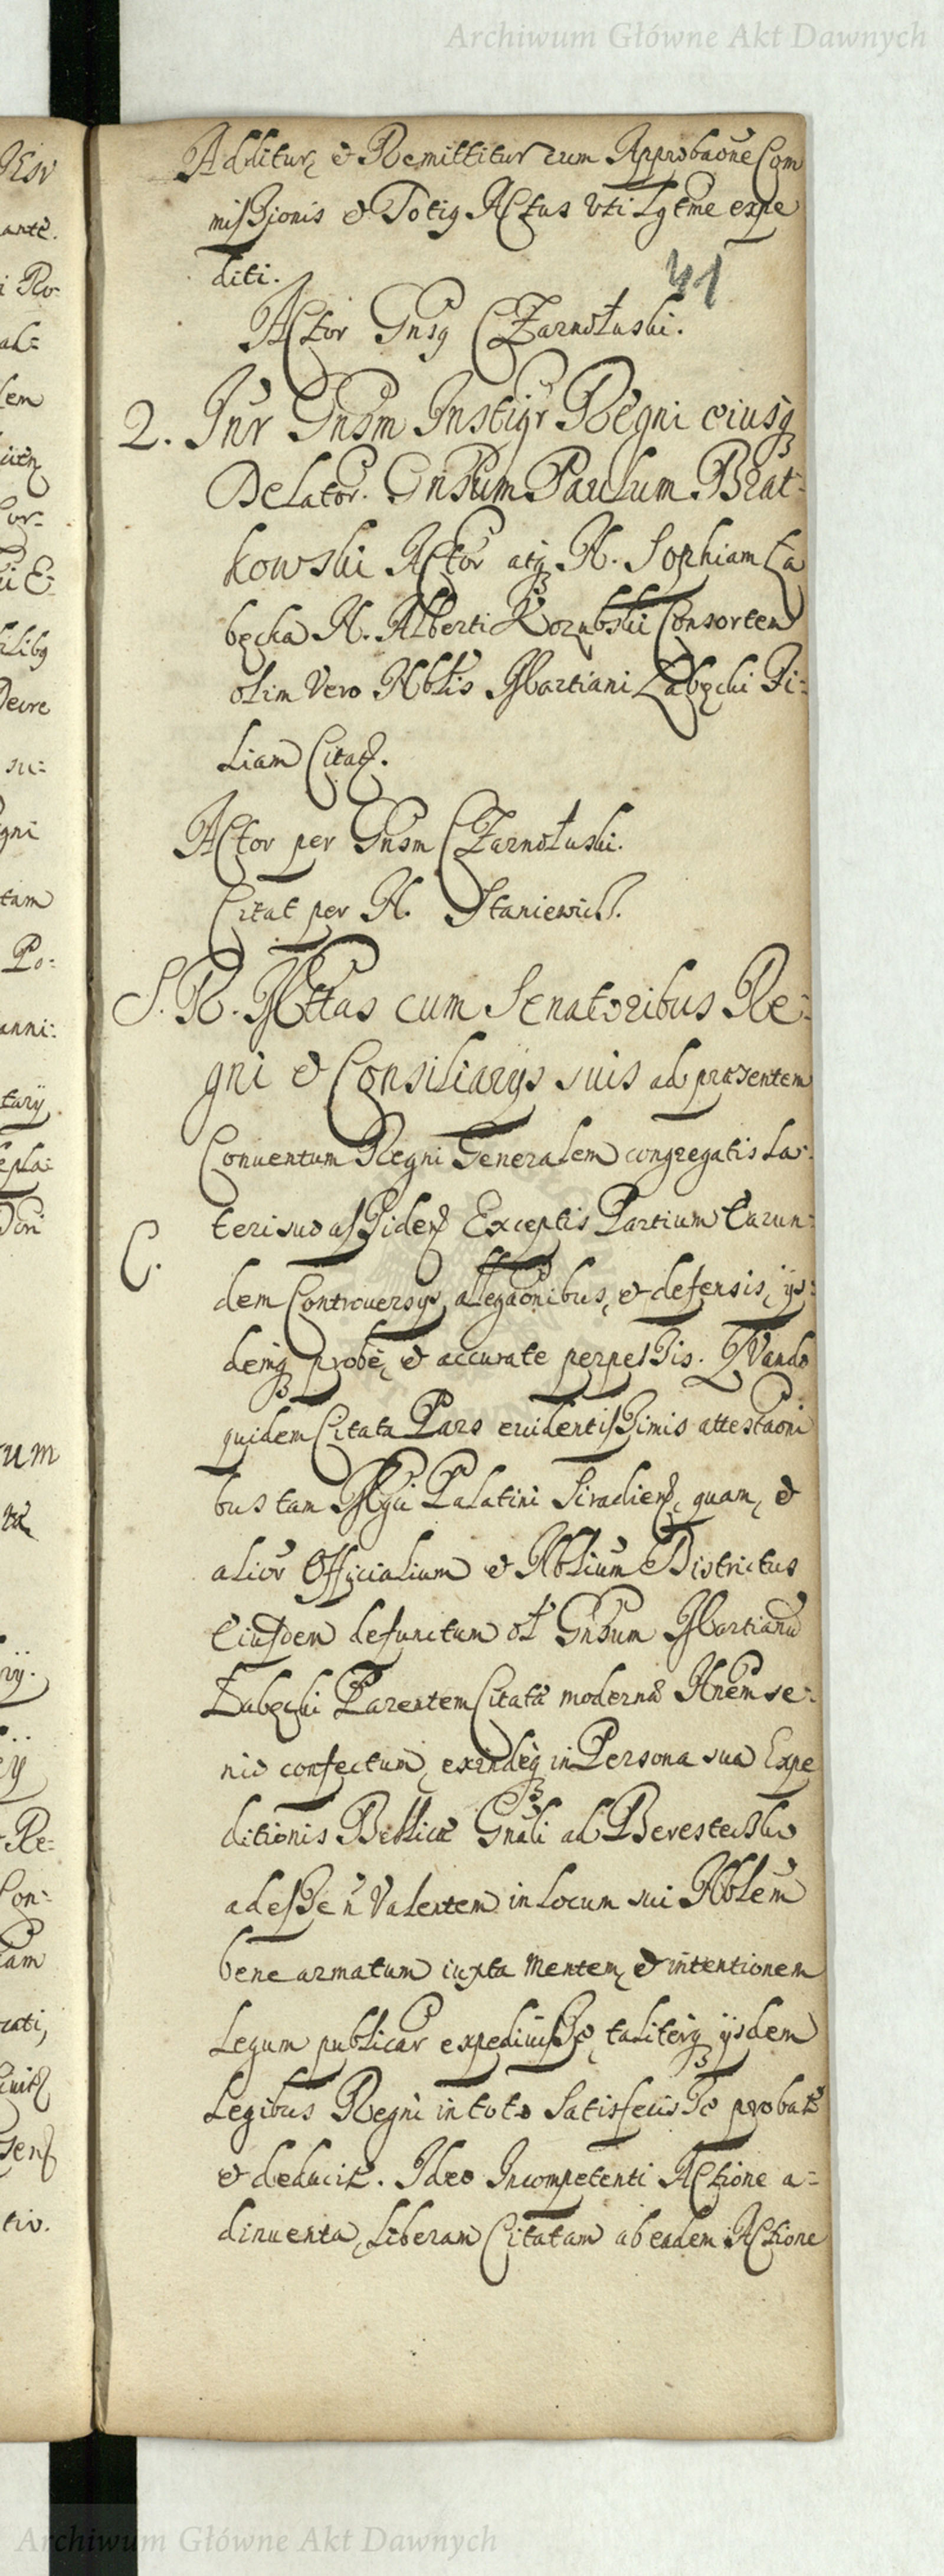 Archiwum Główne Akt Dawnych
Additur, et Remittitur cum Approbaõne Com
missionis et Totiq Actus Uti Lgtme expe
diti.
41
Actor Gnsq Czarnołuski.
2. Inr Gnsm Instigr Regni eiusq
Delator. Gnsum Paulum Brat-
kowski Actor atq N. Sophiam Ła
bęcka N. Alberti Consortem
olim Vero Nblis Martiani Łabęcki Fi-
liam Citat.
Actor per Gnsm Czarnołuski.
Citat per N. Staniewicz.
S. R. Mttas cum Senatoribus Re-
gni et Consiliarijs suis ad præsentem
Conuentum Regni Generalem congregatis La-
C. teri suo assiden Exceptis Partium earun-
dem Controuersijs, allegaõnibus, et defensis, ijs-
demq probè, et accurate perpensis. Quando
quidem Citata Pars euidentissimis attestaõni
bus tam Mgci Palatini Siradien, quam, et
alior Officialium et Nblium Districtus
Eiusdem defunctum ol Gnsum Martianũ
Łabęcki Parentem Citatæ modernæ se-
nio confectum, exindeq in Persona sua Expe
ditionis Bellicæ Gnali ad Beresteczko
adesse ñ Valentem in Locum sui Nblem
bene armatum iuxta Mentem, et intentionem
Legum publicar expediuisse, taliterq ijsdem
Legibus Regni in toto Satisfecisse probat
et deducit. Ideo Incompetenti Actione a-
dinuenta, Liberam Citatam ab eadem Actione
Archiwum Główne Akt Dawnych